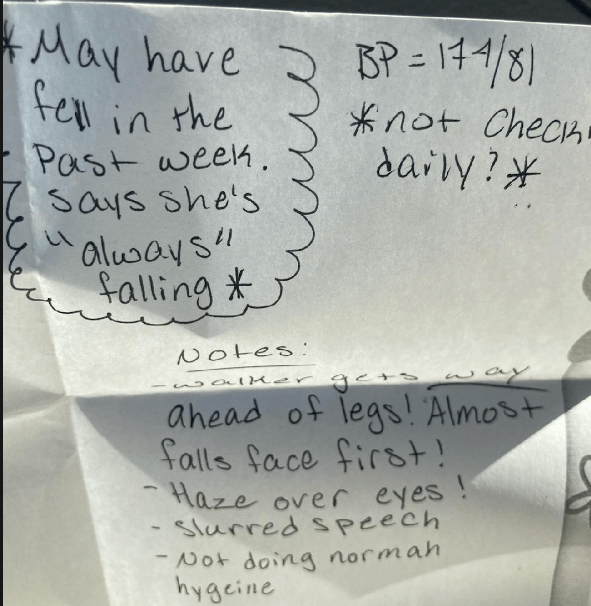 * May have
fell in the
Past week.
says she's
"always"
falling *
BP = 174/81
*not Check
daily? *
Notes:
- walker gets way
ahead of legs! Almost
falls face first!
- Haze over eyes!
- slurred speech
- Not doing normah
hygeine